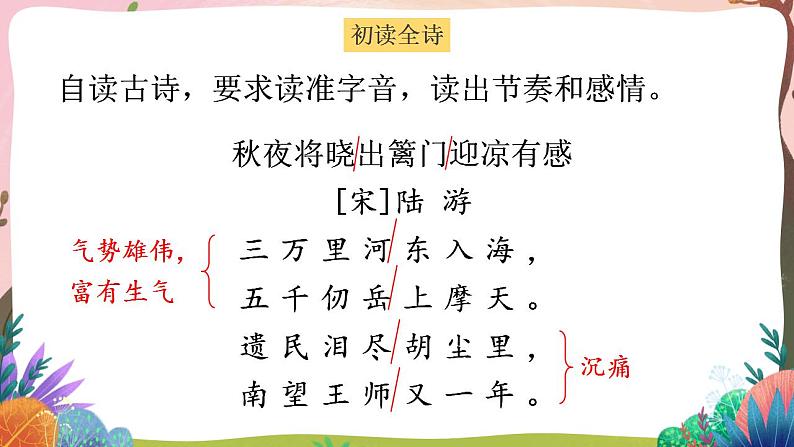 初读全诗
自读古诗，要求读准字音，读出节奏和感情。
秋夜将晓/出篱门/迎凉有感
[宋]陆 游
气势雄伟，
富有生气
三万里河/东入海，
五千仞岳/上摩天。
遗民泪尽/胡尘里，
南望王师/又一年。
沉痛